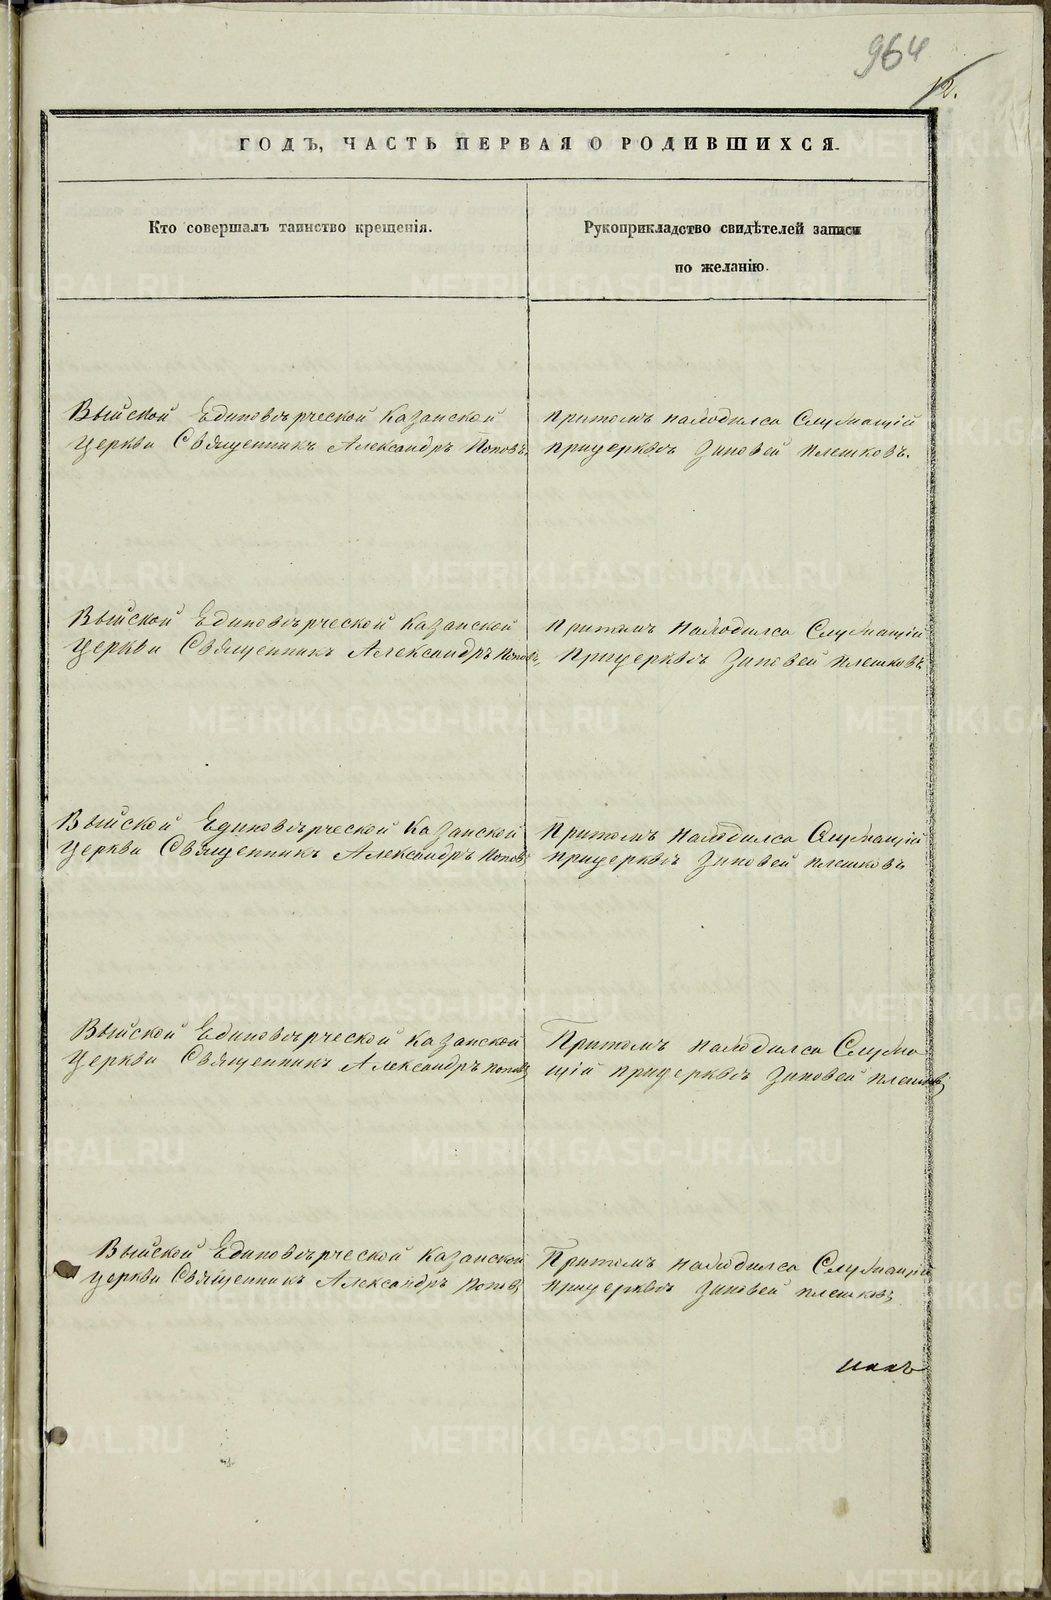 964
12.
ГОДЪ, ЧАСТЬ ПЕРВАЯ О РОДИВШИХСЯ.
Кто совершалъ таинство крещенія.
Рукоприкладство свидѣтелей записи
по желанію.
Выйской Единовѣрческой Казанской
церкви Священникъ Александръ Поповъ.
Притомъ находился Служащій
прицерквѣ Зиновей Плешковъ.
Выйской Единовѣрческой Казанской
церкви Священникъ Александръ Поповъ,
Притомъ Находился Служащій
прицерквѣ Зиновей Плешковъ
Выйской Единовѣрческой Казанской
церкви Священникъ Александръ Поповъ
Притомъ Находился Служащій
прицерквѣ Зиновей Плешковъ
Выйской Единовѣрческой Казанской
церкви Священникъ Александръ Поповъ
Притомъ находился Служа
щій прицерквѣ Зиновей Плешковъ
Выйской Единовѣрческой Казанской
церкви Священникъ Александръ Поповъ
Притомъ находился Служащій
прицерквѣ Зиновей Плешковъ
METRIKI.GASO-URAL.RU